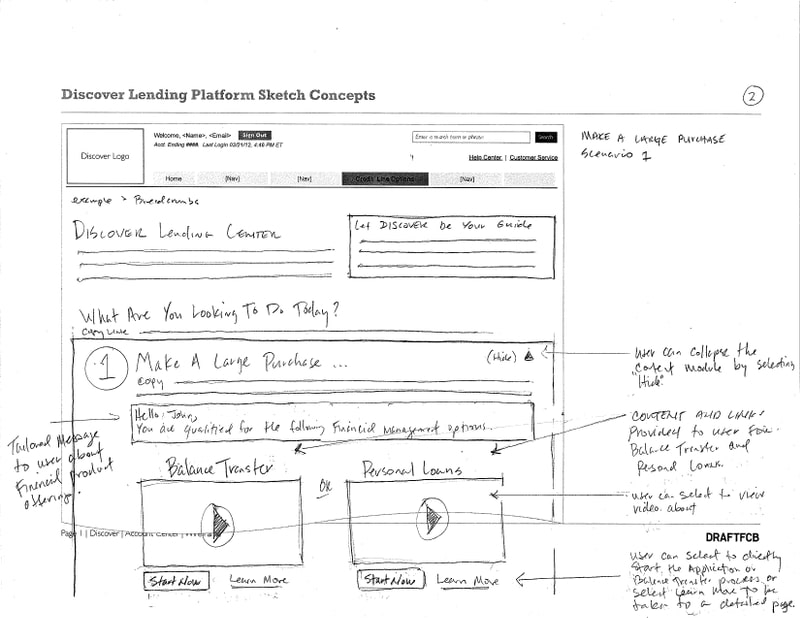 Discover Lending Platform Sketch Concepts
2
Discover Logo
Welcome, <Name>, <Email> Sign Out
Acct Ending ####. Last Login 03/21/12, 4:40 PM ET
Enter a search term or phrase Search
Help Center | Customer Service
Home [Nav] [Nav] Credit Line Options [Nav]
MAKE A LARGE PURCHASE
Scenario 1
example > Breadcrumbs
DISCOVER Lending CENTER
Let DISCOVER Be Your Guide
What Are You Looking To Do Today?
Copy Line
1 Make A Large Purchase ... (Hide)
Copy
User can collapse the
content module by selecting
"Hide"
Hello, John,
You are qualified for the following Financial Management options.
Tailored Message
to user about
Financial Product
offering.
CONTENT AND LINKS
Provided to user for
Balance Transfer and
Personal Loans.
Balance Transfer OR Personal Loans
user can select to view
video about
Page 1 | Discover | Account Center |
DRAFTFCB
Start Now Learn More Start Now Learn More
User can select to directly
Start the Application or
Balance Transfer process or
select Learn More to be
taken to a detailed page.